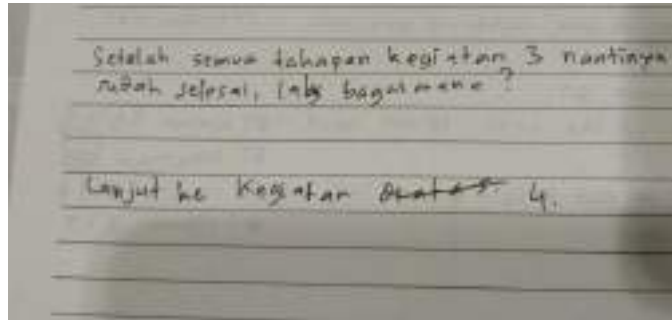 Setelah semua tahapan kegiatan 3 nantinya
sudah selesai, lalu bagaimana?
Lanjut ke Kegiatan 4.